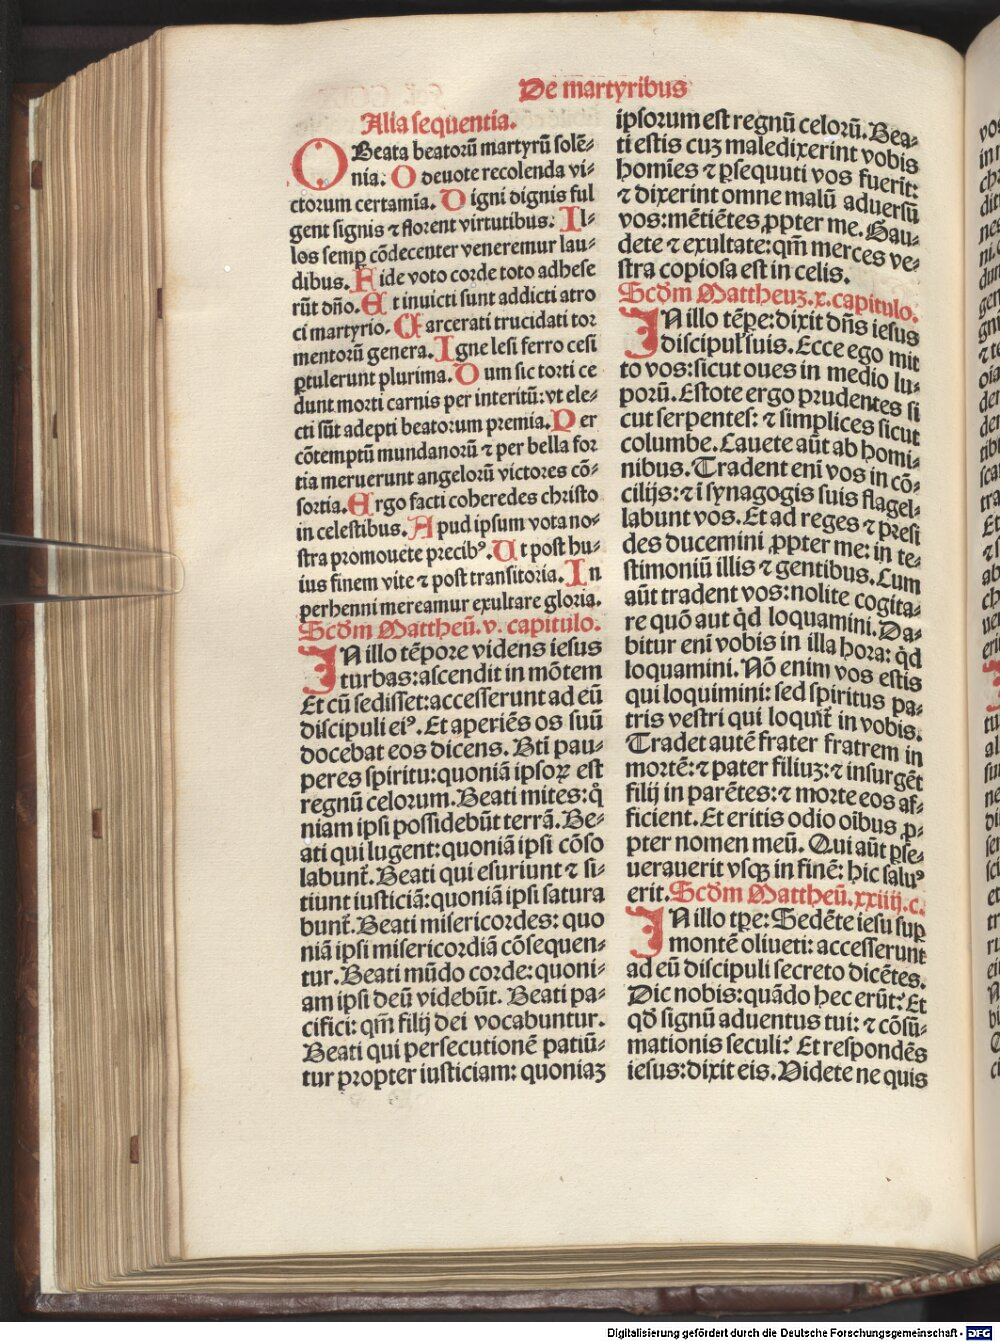 De martyribus
Alia sequentia.
O Beata beatorū martyrū solē⸗
nia. O deuote recolenda vi⸗
ctorum certamīa. Digni dignis ful
gent signis ⁊ florent virtutibus. Il⸗
los semꝑ cōdecenter veneremur lau⸗
dibus. Fide voto corde toto adhese
rūt dño. Et inuicti sunt addicti atro
ci martyrio. Carcerati trucidati tor
mentorū genera. Igne lesi ferro cesi
ꝑtulerunt plurima. Dum sic torti ce
dunt morti carnis per interitū: vt ele⸗
cti sūt adepti beatorum premia. Per
cōtemptū mundanorū ⁊ per bella for
tia meruerunt angelorū victores cō⸗
sortia. Ergo facti coheredes christo
in celestibus. Apud ipsum vota no⸗
stra promouete precibꝰ. Ut post hu⸗
ius finem vite ⁊ post transitoria. In
perhenni mereamur exultare gloria.
Scd̄m Mattheū. v. capitulo.
IN illo tēpore videns iesus
turbas: ascendit in mōtem
Et cū sedisset: accesserunt ad eū
discipuli eiꝰ. Et aperiēs os suū
docebat eos dicens. Bti pau⸗
peres spiritu: quoniā ipsoꝝ est
regnū celorum. Beati mites: q̄
niam ipsi possidebūt terrā. Be⸗
ati qui lugent: quoniā ipsi cōso
labunt̄. Beati qui esuriunt ⁊ si⸗
tiunt iusticiā: quoniā ipsi satura
bunt̄. Beati misericordes: quo
niā ipsi misericordiā cōsequen⸗
tur. Beati mūdo corde: quoni⸗
am ipsi deū videbūt. Beati pa⸗
cifici: qm̄ filij dei vocabuntur.
Beati qui persecutionē patiū⸗
tur propter iusticiam: quoniaꝫ
ipsorum est regnū celorū. Bea⸗
ti estis cuꝫ maledixerint vobis
homīes ⁊ ꝑsequuti vos fuerīt:
⁊ dixerint omne malū aduersū
vos: mētiētes ꝓpter me. Gau⸗
dete ⁊ exultate: qm̄ merces ve⸗
stra copiosa est in celis.
Scd̄m Mattheuꝫ. x. capitulo.
IN illo tēpe: dixit dn̄s iesus
discipul̕ suis. Ecce ego mit
to vos: sicut oues in medio lu⸗
porū. Estote ergo prudentes si
cut serpentes: ⁊ simplices sicut
columbe. Cauete aūt ab homi⸗
nibus. Tradent enī vos in cō⸗
cilijs: ⁊ ī synagogis suis flagel⸗
labunt vos. Et ad reges ⁊ presi
des ducemini ꝓpter me: in te⸗
stimoniū illis ⁊ gentibus. Cum
aūt tradent vos: nolite cogita⸗
re quō aut q̇d loquamini. Da⸗
bitur enī vobis in illa hora: q̇d
loquamini. Nō enim vos estis
qui loquimini: sed spiritus pa⸗
tris vestri qui loquit̄ in vobis.
Tradet autē frater fratrem in
mortē: ⁊ pater filiuꝫ: ⁊ insurgēt
filij in parētes: ⁊ morte eos af⸗
ficient. Et eritis odio oībus ꝓ⸗
pter nomen meū. Qui aūt ꝑse⸗
uerauerit vsqꝫ in finē: hic saluꝰ
erit. Scd̄m Mattheū. xxiiij. c.
IN illo tꝑe: Sedēte iesu suꝑ
montē oliueti: accesserunt
ad eū discipuli secreto dicētes.
Dic nobis: quādo hec erūt: Et
qd̄ signū aduentus tui: ⁊ cōsū⸗
mationis seculi: Et respondēs
iesus: dixit eis. Videte ne quis
Digitalisierung gefördert durch die Deutsche Forschungsgemeinschaft - DFG